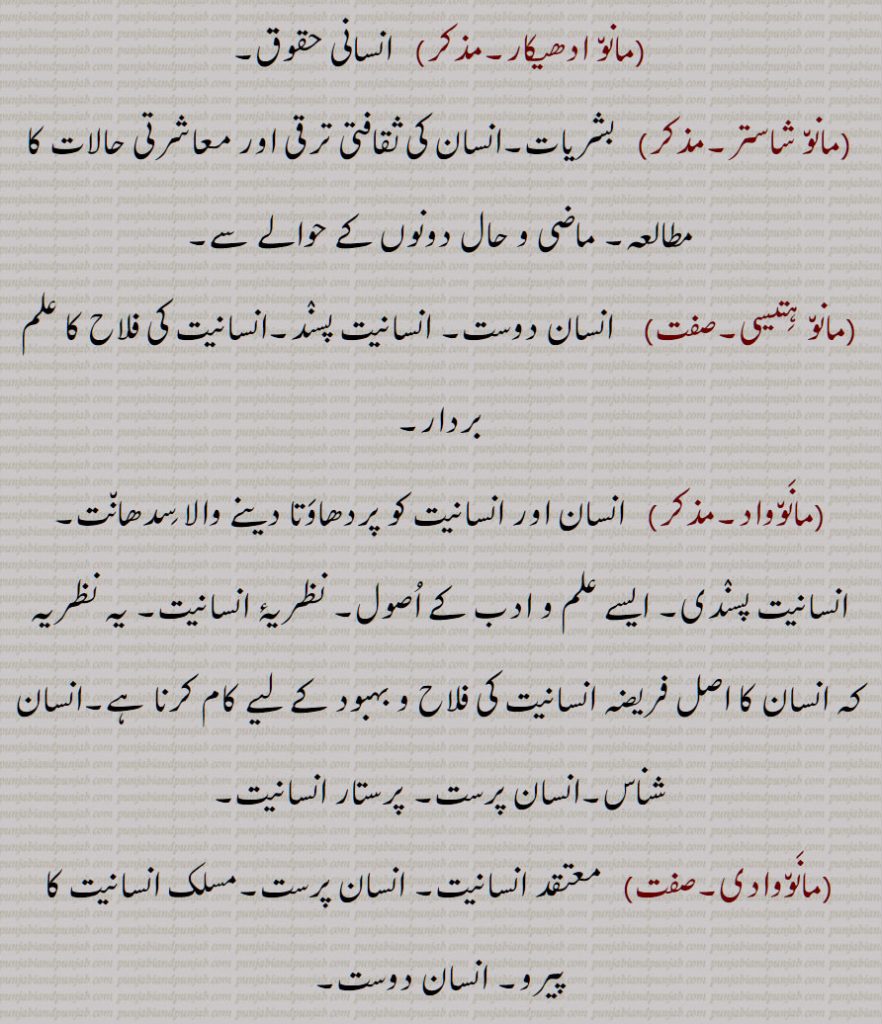 (مانوّ ادھیکار۔مذکر) انسانی حقوق۔
(مانوّ شاستر۔مذکر) بشریات۔انسان کی ثقافتی ترقی اور معاشرتی حالات کا
مطالعہ۔ ماضی و حال دونوں کے حوالے سے۔
(مانوّ ہِتیسی۔صفت) انسان دوست۔ انسانیت پسنْد۔انسانیت کی فلاح کا علم
بردار۔
(مانَوّواد۔مذکر) انسان اور انسانیت کو پردھاوَتا دینے والا سِدھانّت۔
انسانیت پسنْدی۔ ایسے علم و ادب کے اُصول۔ نظریۂ انسانیت۔ یہ نظریہ
کہ انسان کا اصل فریضہ انسانیت کی فلاح و بہبود کے لیے کام کرنا ہے۔انسان
شناس۔انسان پرست۔ پرستار انسانیت۔
(مانَوّوادی۔صفت) معتقد انسانیت۔ انسان پرست۔مسلک انسانیت کا
پیرو۔ انسان دوست۔
punjabiandpunjab.com